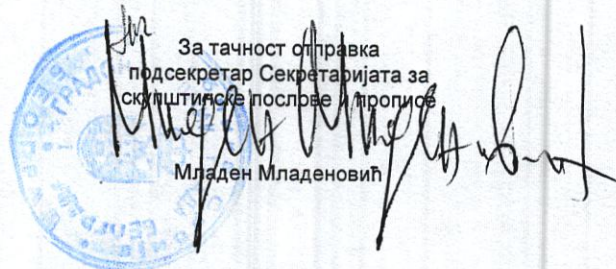 За тачност отправка
подсекретар Секретаријата за
скупштинске послове и прописе
Младен Младеновић